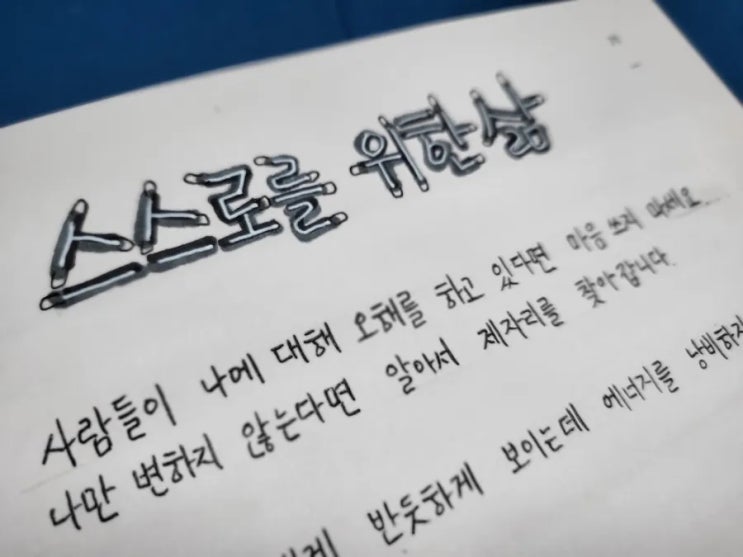 스스로를 위한 삶
사람들이 나에 대해 오해를 하고 있다면 마음 쓰지 마세요.
나만 변하지 않는다면 알아서 제자리를 찾아갑니다.
반듯하게 보이는데 에너지를 낭비하지